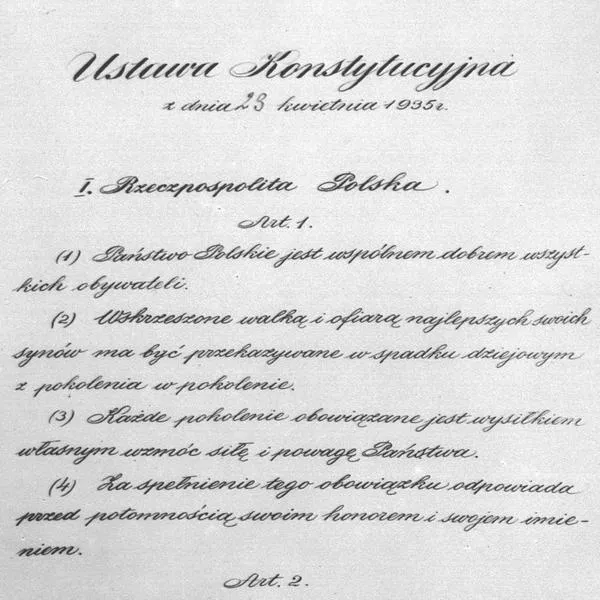 Ustawa Konstytucyjna
z dnia 23 kwietnia 1935 r.
I. Rzeczpospolita Polska.
Art. 1.
(1) Państwo Polskie jest wspólnem dobrem wszyst-
kich obywateli.
(2) Wskrzeszone walką i ofiarą najlepszych swoich
synów ma być przekazywane w spadku dziejowym
z pokolenia w pokolenie.
(3) Każde pokolenie obowiązane jest wysiłkiem
własnym wzmóc siłę i powagę Państwa.
(4) Za spełnienie tego obowiązku odpowiada
przed potomnością swoim honorem i swojem imie-
niem.
Art. 2.